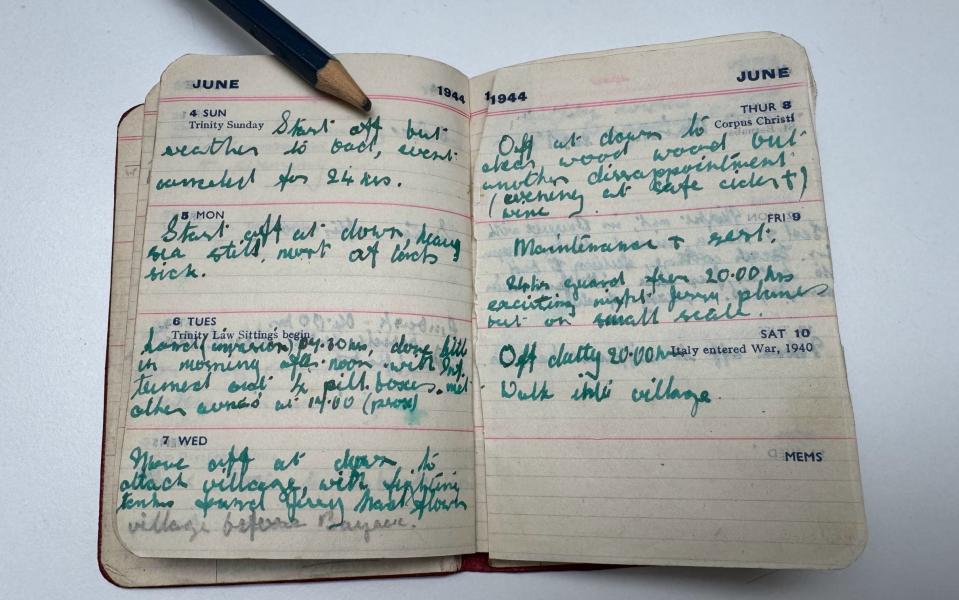 JUNE
1944
4 SUN
Trinity Sunday
Start off but
weather to bad, event
canceled for 24 hrs.
5 MON
Start off at down, heavy
sea still, most of lads
sick.
6 TUES
Trinity Law Sittings begin
Land (invasion) 07.30 hrs,
in morning after noon with
turned out pill boxes. met
other at 14.00
7 WED
Move off at down to
attack village, with fighting
tanks found Jerry had flown
village before Bayeux.
1944
JUNE
THUR 8
Corpus Christi
Off at down to
clear wood wood but
another disappointment
(evening at cafe cider +)
wine
FRI 9
Maintenance + rest.
24hr guard from 20.00 hrs
exciting night Jerry planes
but on small scale.
SAT 10
Italy entered War, 1940
Off dutty 20.00hrs
Walk into village
MEMS